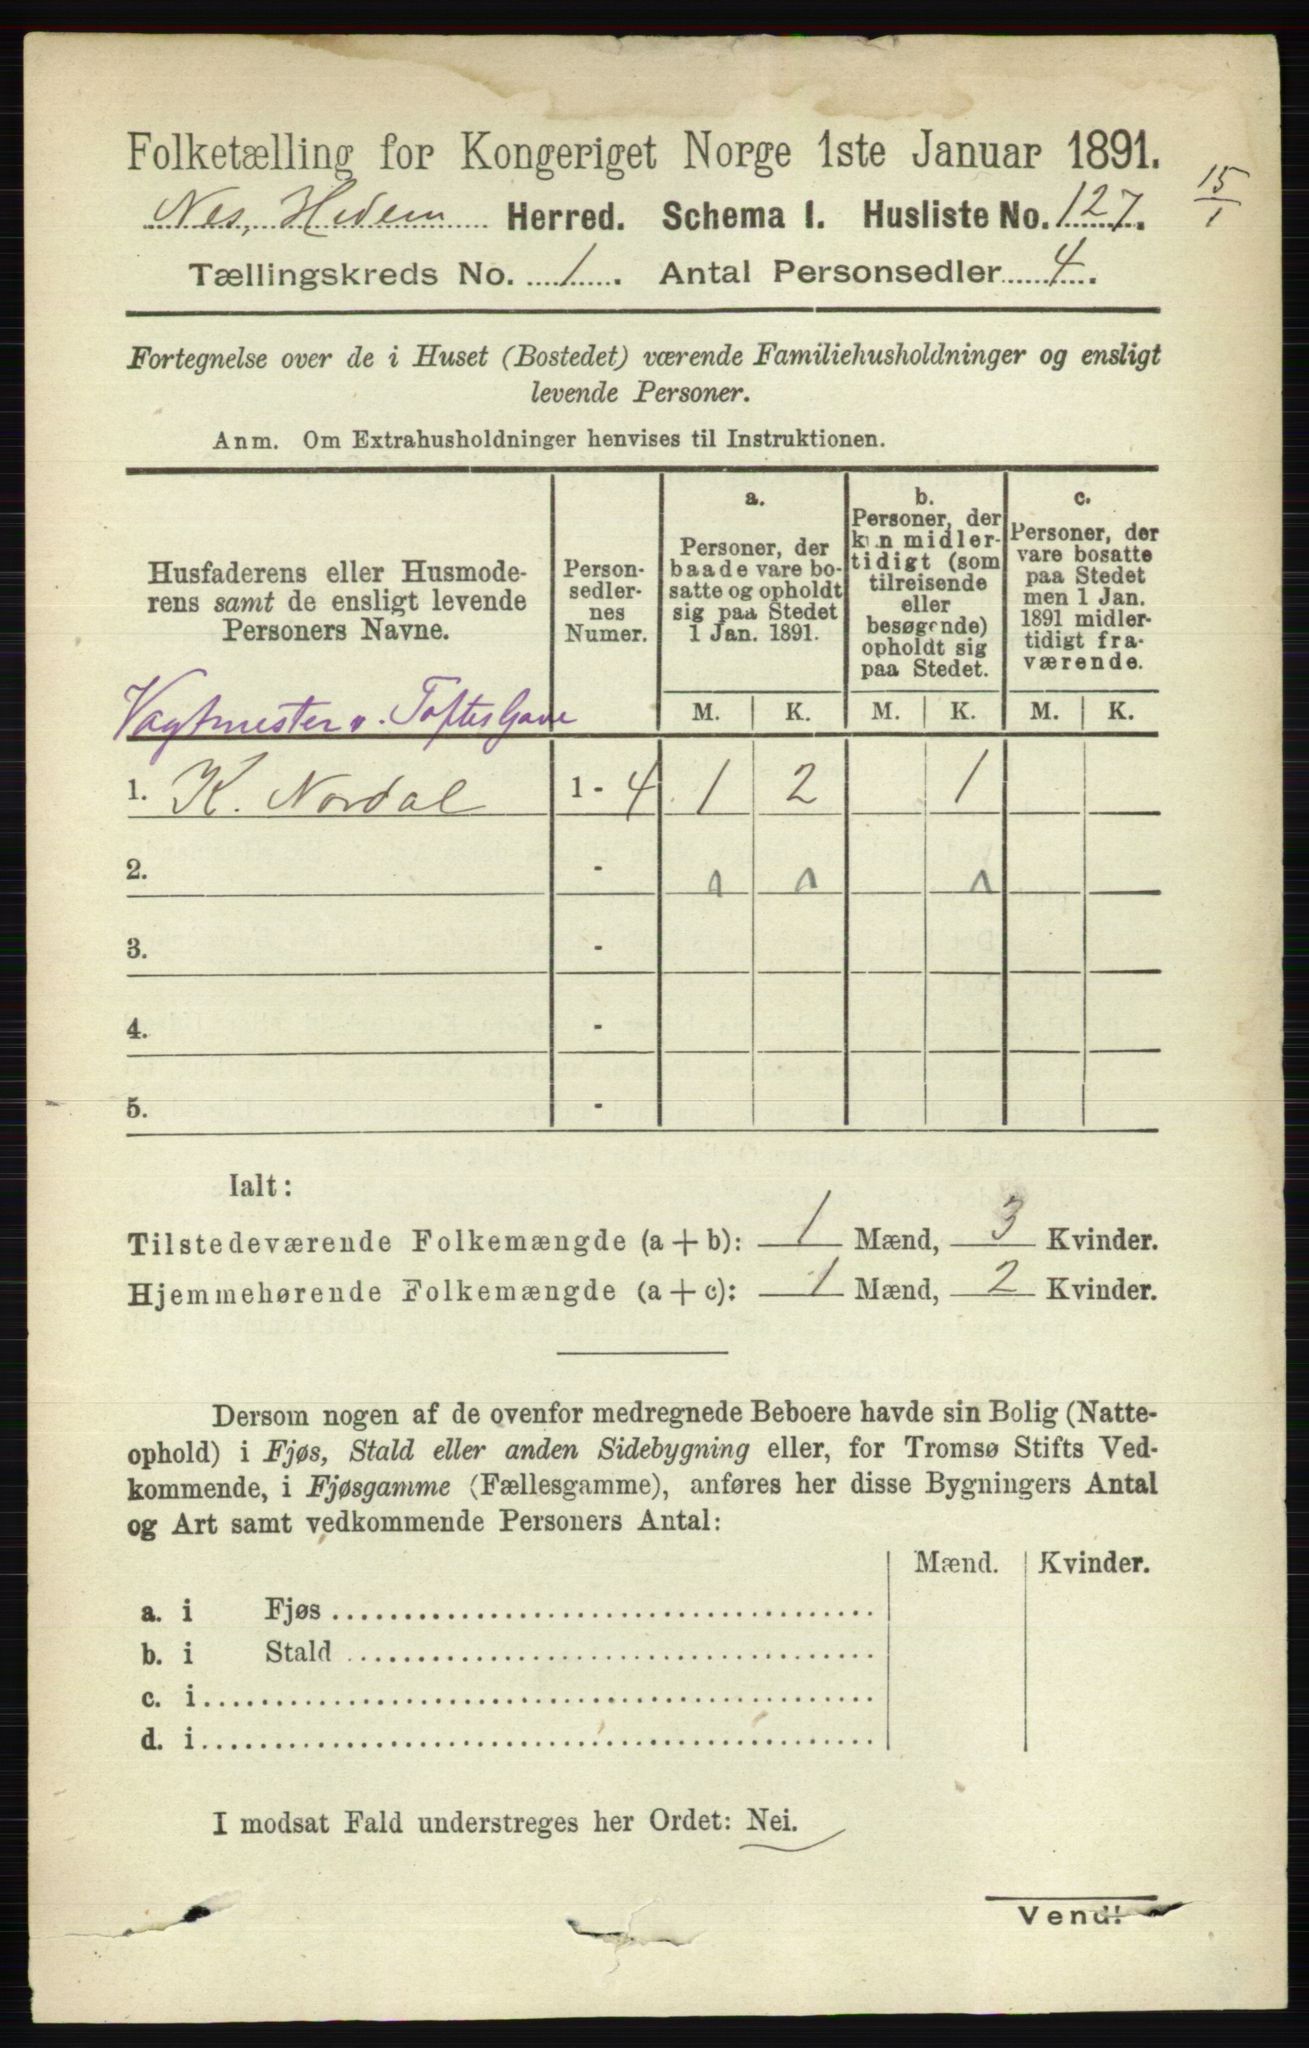 Folketælling for Kongeriget Norge 1ste Januar 1891.
15/1
Nes, Hedem Herred. Schema I. Husliste No. 127.
Tællingskreds No. 1. Antal Personsedler 4.
Fortegnelse over de i Huset (Bostedet) værende Familiehusholdninger og ensligt
levende Personer.
Anm. Om Extrahusholdninger henvises til Instruktionen.
Husfaderens eller Husmode-
rens samt de ensligt levende
Personers Navne.
Person-
sedler-
nes
Numer.
a.
Personer, der
baade vare bo-
satte og opholdt
sig paa Stedet
1 Jan. 1891.
b.
Personer, der
kun midler-
tidigt (som
tilreisende
eller
besøgende)
opholdt sig
paa Stedet.
c.
Personer, der
vare bosatte
paa Stedet
men 1 Jan.
1891 midler-
tidigt fra-
værende.
Vagtmester v. Toftes Gave
M. K. M. K. M. K.
1. K. Nordal 1 - 4 1 2 1
2. -
3. -
4. -
5. -
Ialt:
Tilstedeværende Folkemængde (a + b): 1 Mænd, 3 Kvinder.
Hjemmehørende Folkemængde (a + c): 1 Mænd, 2 Kvinder.
Dersom nogen af de ovenfor medregnede Beboere havde sin Bolig (Natte-
ophold) i Fjøs, Stald eller anden Sidebygning eller, for Tromsø Stifts Ved-
kommende, i Fjøsgamme (Fællesgamme), anføres her disse Bygningers Antal
og Art samt vedkommende Personers Antal:
Mænd. Kvinder.
a. i Fjøs
b. i Stald
c. i
d. i
I modsat Fald understreges her Ordet: Nei.
Vend!